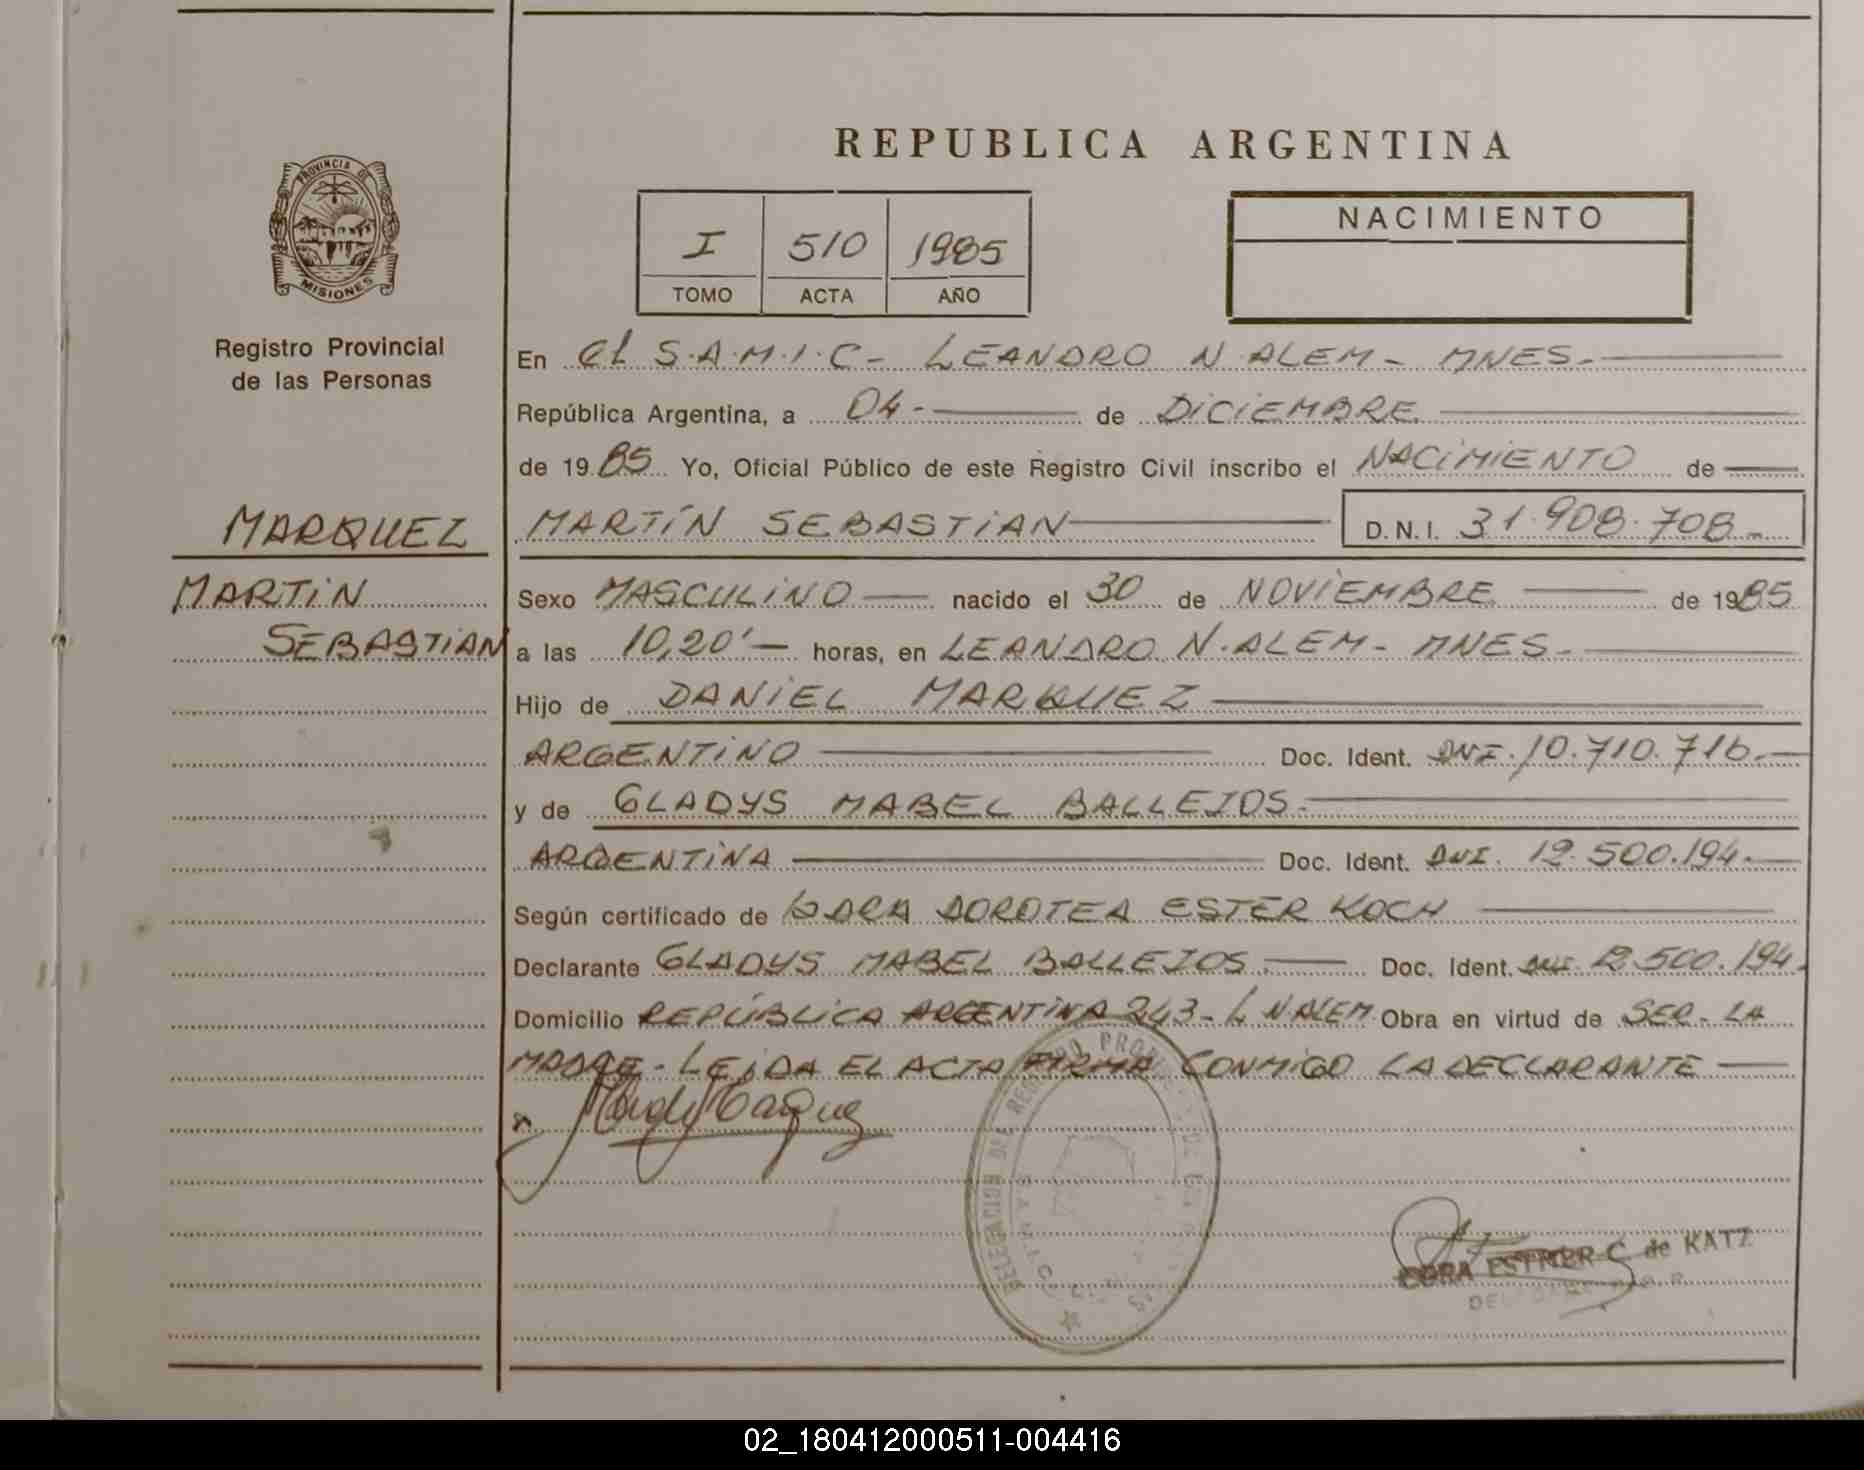 REPUBLICA ARGENTINA
PROVINCIA DE
MISIONES
Registro Provincial
de las Personas
I 510 1985
TOMO ACTA AÑO
NACIMIENTO
En el S.A.M.I.C - LEANDRO N. ALEM - MNES.-
República Argentina, a 04.- de DICIEMBRE
de 1985 Yo, Oficial Público de este Registro Civil inscribo el NACIMIENTO de
MARQUEZ
MARTIN
SEBASTIAN
MARTÍN SEBASTIAN D.N.I. 31.908.708.-
Sexo MASCULINO nacido el 30 de NOVIEMBRE de 1985
a las 10,20'- horas, en LEANDRO N. ALEM - MNES.-
Hijo de DANIEL MARQUEZ
ARGENTINO Doc. Ident. DNI. 10.710.716.-
y de GLADYS MABEL BALLEJOS.-
ARGENTINA Doc. Ident. DNI. 12.500.194.-
Según certificado de DOROTEA ESTER KOCH
Declarante GLADYS MABEL BALLEJOS.- Doc. Ident. DNI. 12.500.194.
Domicilio REPÚBLICA ARGENTINA 243 - L N ALEM Obra en virtud de SER - LA
MADRE - LEIDA EL ACTA FIRMA CONMIGO LA DECLARANTE
DELEGACION DEL REGISTRO
ESTHER C. de KATZ
02_180412000511-004416